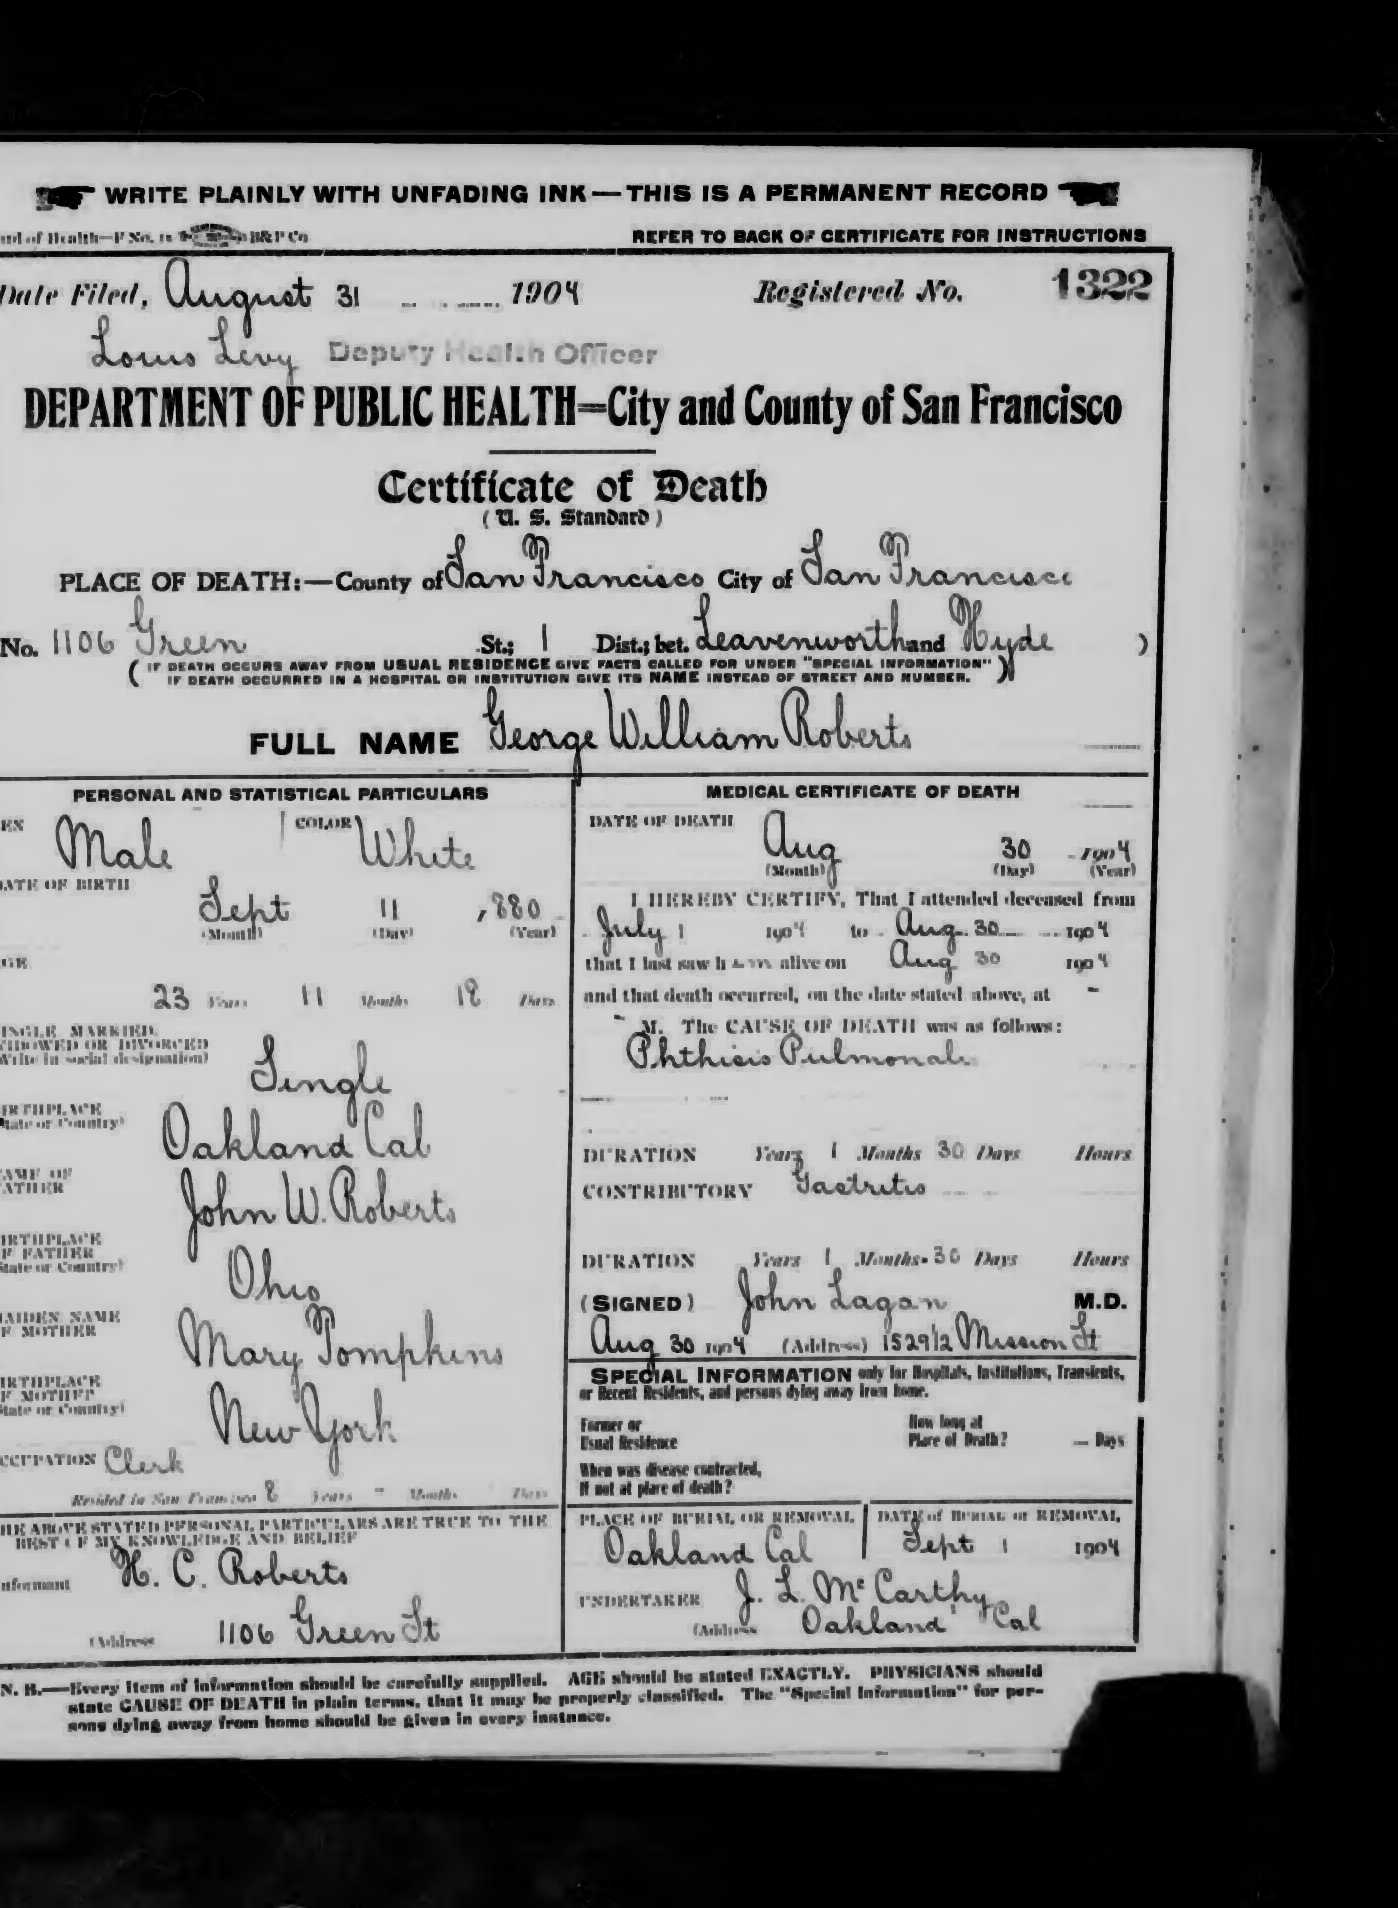 WRITE PLAINLY WITH UNFADING INK—THIS IS A PERMANENT RECORD
of Health—F No. B&P Co
REFER TO BACK OF CERTIFICATE FOR INSTRUCTIONS
Date Filed, August 31 1904 Registered No. 1322
Louis Levy Deputy Health Officer
DEPARTMENT OF PUBLIC HEALTH=City and County of San Francisco
Certificate of Death
(U. S. Standard)
PLACE OF DEATH:—County of San Francisco City of San Francisco
No. 1106 Green St.; 1 Dist.; bet. Leavenworth and Hyde )
( IF DEATH OCCURS AWAY FROM USUAL RESIDENCE GIVE FACTS CALLED FOR UNDER "SPECIAL INFORMATION"
IF DEATH OCCURRED IN A HOSPITAL OR INSTITUTION GIVE ITS NAME INSTEAD OF STREET AND NUMBER. )
FULL NAME George William Roberts
PERSONAL AND STATISTICAL PARTICULARS
EX Male COLOR White
DATE OF BIRTH
Sept 11 , 880
(Month) (Day) (Year)
GE
23 Years 11 Months 18 Days
INGLE, MARRIED,
WIDOWED OR DIVORCED
Write in social designation)
Single
IRTHPLACE
State or Country)
Oakland Cal
AME OF
ATHER
John W. Roberts
IRTHPLACE
F FATHER
State or Country)
Ohio
AIDEN NAME
F MOTHER
Mary Tompkins
IRTHPLACE
F MOTHER
State or Country)
New York
CCUPATION Clerk
Resided in San Francisco 8 Years - Months Days
HE ABOVE STATED PERSONAL PARTICULARS ARE TRUE TO THE
BEST OF MY KNOWLEDGE AND BELIEF
nformant H. C. Roberts
(Address 1106 Green St
MEDICAL CERTIFICATE OF DEATH
DATE OF DEATH
Aug 30 1904
(Month) (Day) (Year)
I HEREBY CERTIFY, That I attended deceased from
July 1 1904 to Aug 30 1904
that I last saw him alive on Aug 30 1904
and that death occurred, on the date stated above, at -
- M. The CAUSE OF DEATH was as follows:
Phthisis Pulmonalis
DURATION Years 1 Months 30 Days Hours
CONTRIBUTORY Gastritis
DURATION Years 1 Months 30 Days Hours
(SIGNED) John Lagan M.D.
Aug 30 1904 (Address) 1529 1/2 Mission St
SPECIAL INFORMATION only for Hospitals, Institutions, Transients,
or Recent Residents, and persons dying away from home.
Former or
Usual Residence
How long at
Place of Death? — Days
When was disease contracted,
If not at place of death?
PLACE OF BURIAL OR REMOVAL
Oakland Cal
DATE of BURIAL or REMOVAL
Sept 1 1904
UNDERTAKER J. L. McCarthy
(Address Oakland Cal
N. B.—Every item of information should be carefully supplied. AGE should be stated EXACTLY. PHYSICIANS should
state CAUSE OF DEATH in plain terms, that it may be properly classified. The "Special Information" for per-
sons dying away from home should be given in every instance.